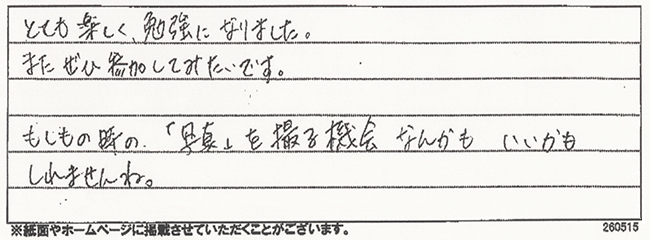 とても楽しく、勉強になりました。
またぜひ参加してみたいです。
もしもの時の、「写真」を撮る機会なんかも いいかも
しれませんね。
※紙面やホームページに掲載させていただくことがございます。
260515